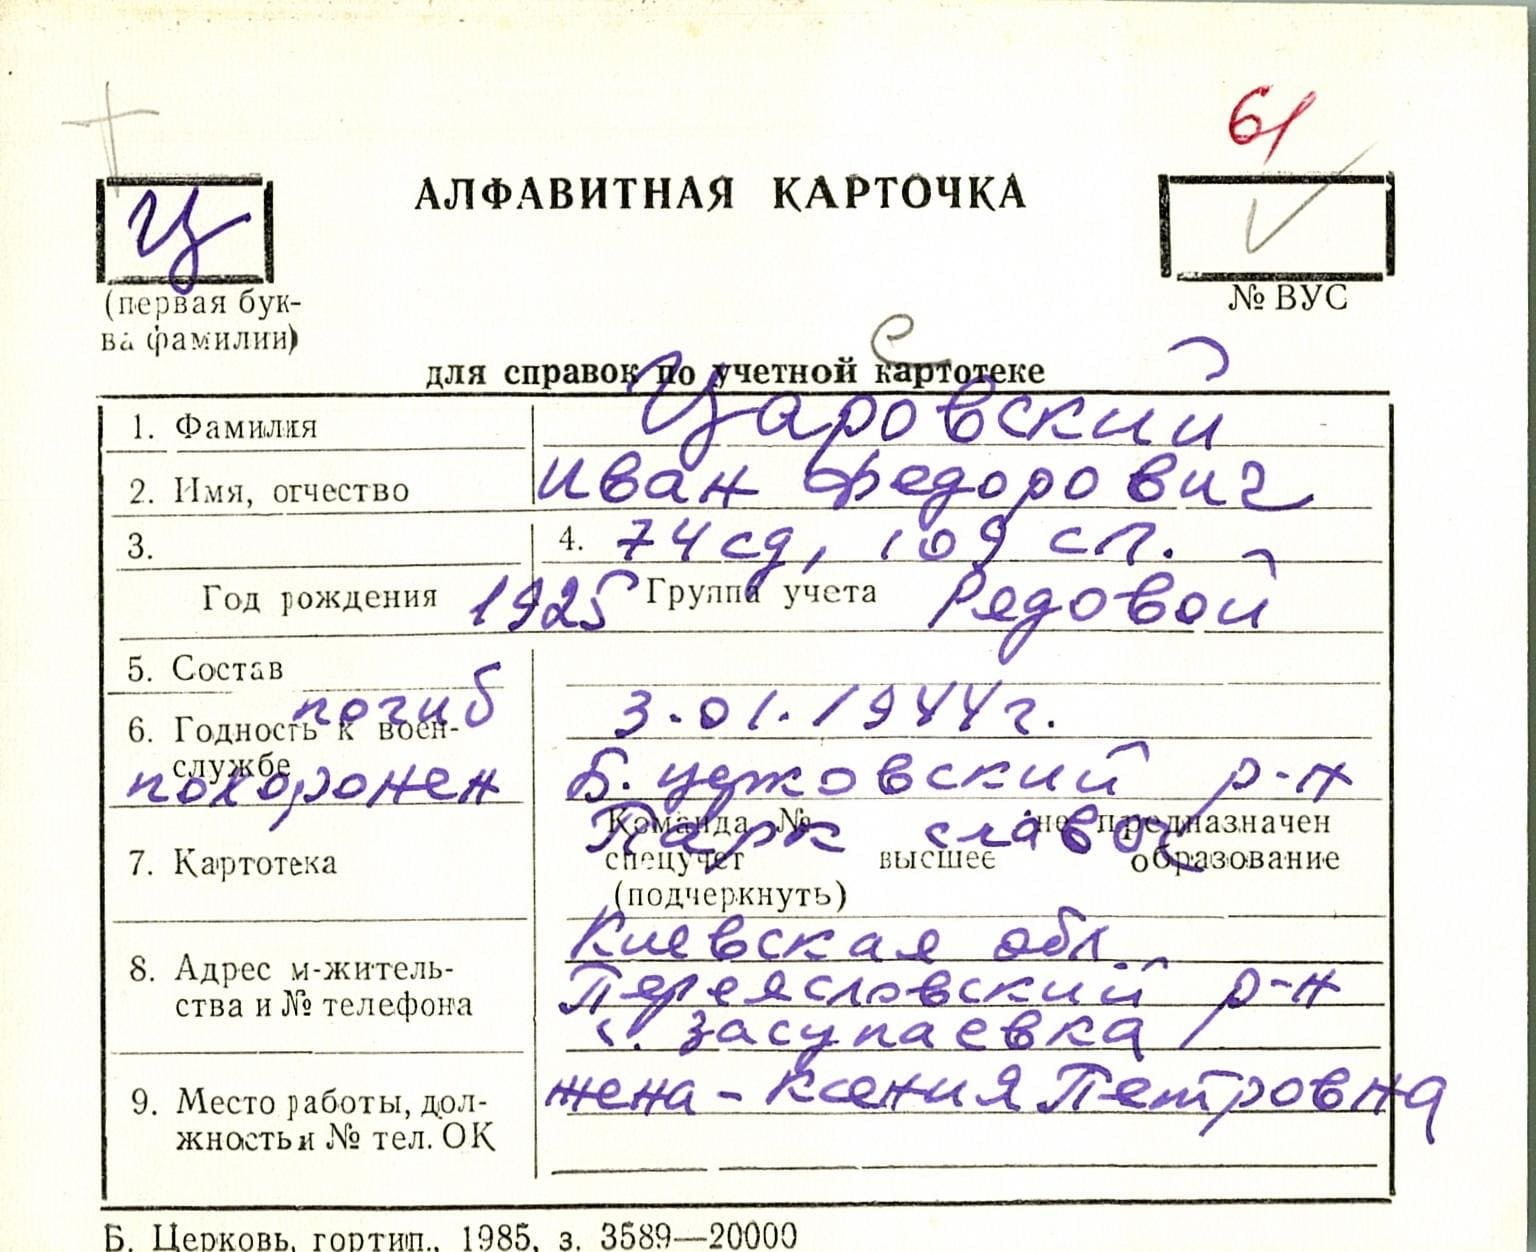 61
Ц
АЛФАВИТНАЯ КАРТОЧКА
(первая бук-
ва фамилии)
№ ВУС
для справок по учетной картотеке
1. Фамилия Царовский
2. Имя, отчество Иван Федорович
3. 4. 74 сд, 109 сп.
Год рождения 1925 Группа учета Рядовой
5. Состав
погиб 3.01.1944г.
6. Годность к воен-
службе
похоронен Б. церковский р-н
Парк славы
Команда № не предназначен
7. Картотека спецучет высшее образование
(подчеркнуть)
Киевская обл.
8. Адрес м-житель-
ства и № телефона
Переясловский р-н
с. Засупаевка
9. Место работы, дол-
жность и № тел. ОК
жена - Ксения Петровна
Б. Церковь, гортип., 1985, з. 3589—20000